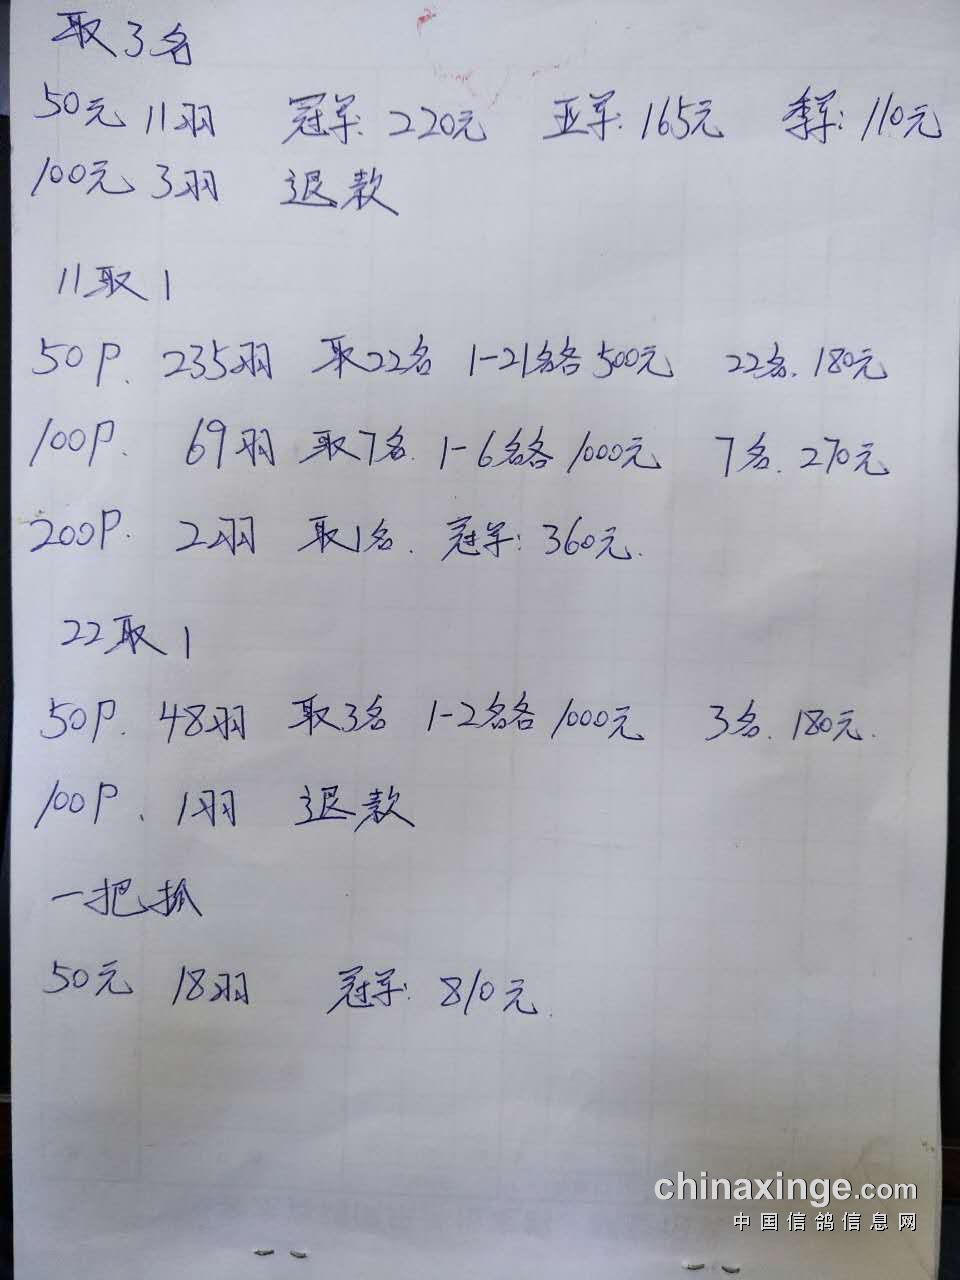 取3名
50元 11羽 冠军: 220元 亚军: 165元 季军: 110元
100元 3羽 退款
11取1
50P. 235羽 取22名 1-21名各500元 22名. 180元
100P. 69羽 取7名. 1-6名各1000元 7名. 270元
200P. 2羽 取1名. 冠军: 360元.
22取1
50P. 48羽 取3名 1-2名各1000元 3名. 180元.
100P. 1羽 退款
一把抓
50元 18羽 冠军: 810元.
chinaxinge.com
中国信鸽信息网